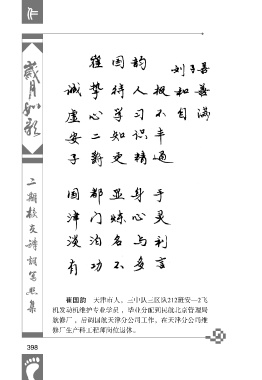 岁月如歌
二期校友诗词写照集
崔国韵
刘子善
诚挚待人极和善
虚心学习不自满
安二知识丰
子爵更精通
国都显身手
津门炼心灵
淡泊名与利
有功不多言
崔国韵 天津市人。三中队三区队212班安—2飞
机发动机维护专业学员，毕业分配到民航北京管理局
航修厂，后调国航天津分公司工作。在天津分公司维
修厂生产科工程师岗位退休。
398